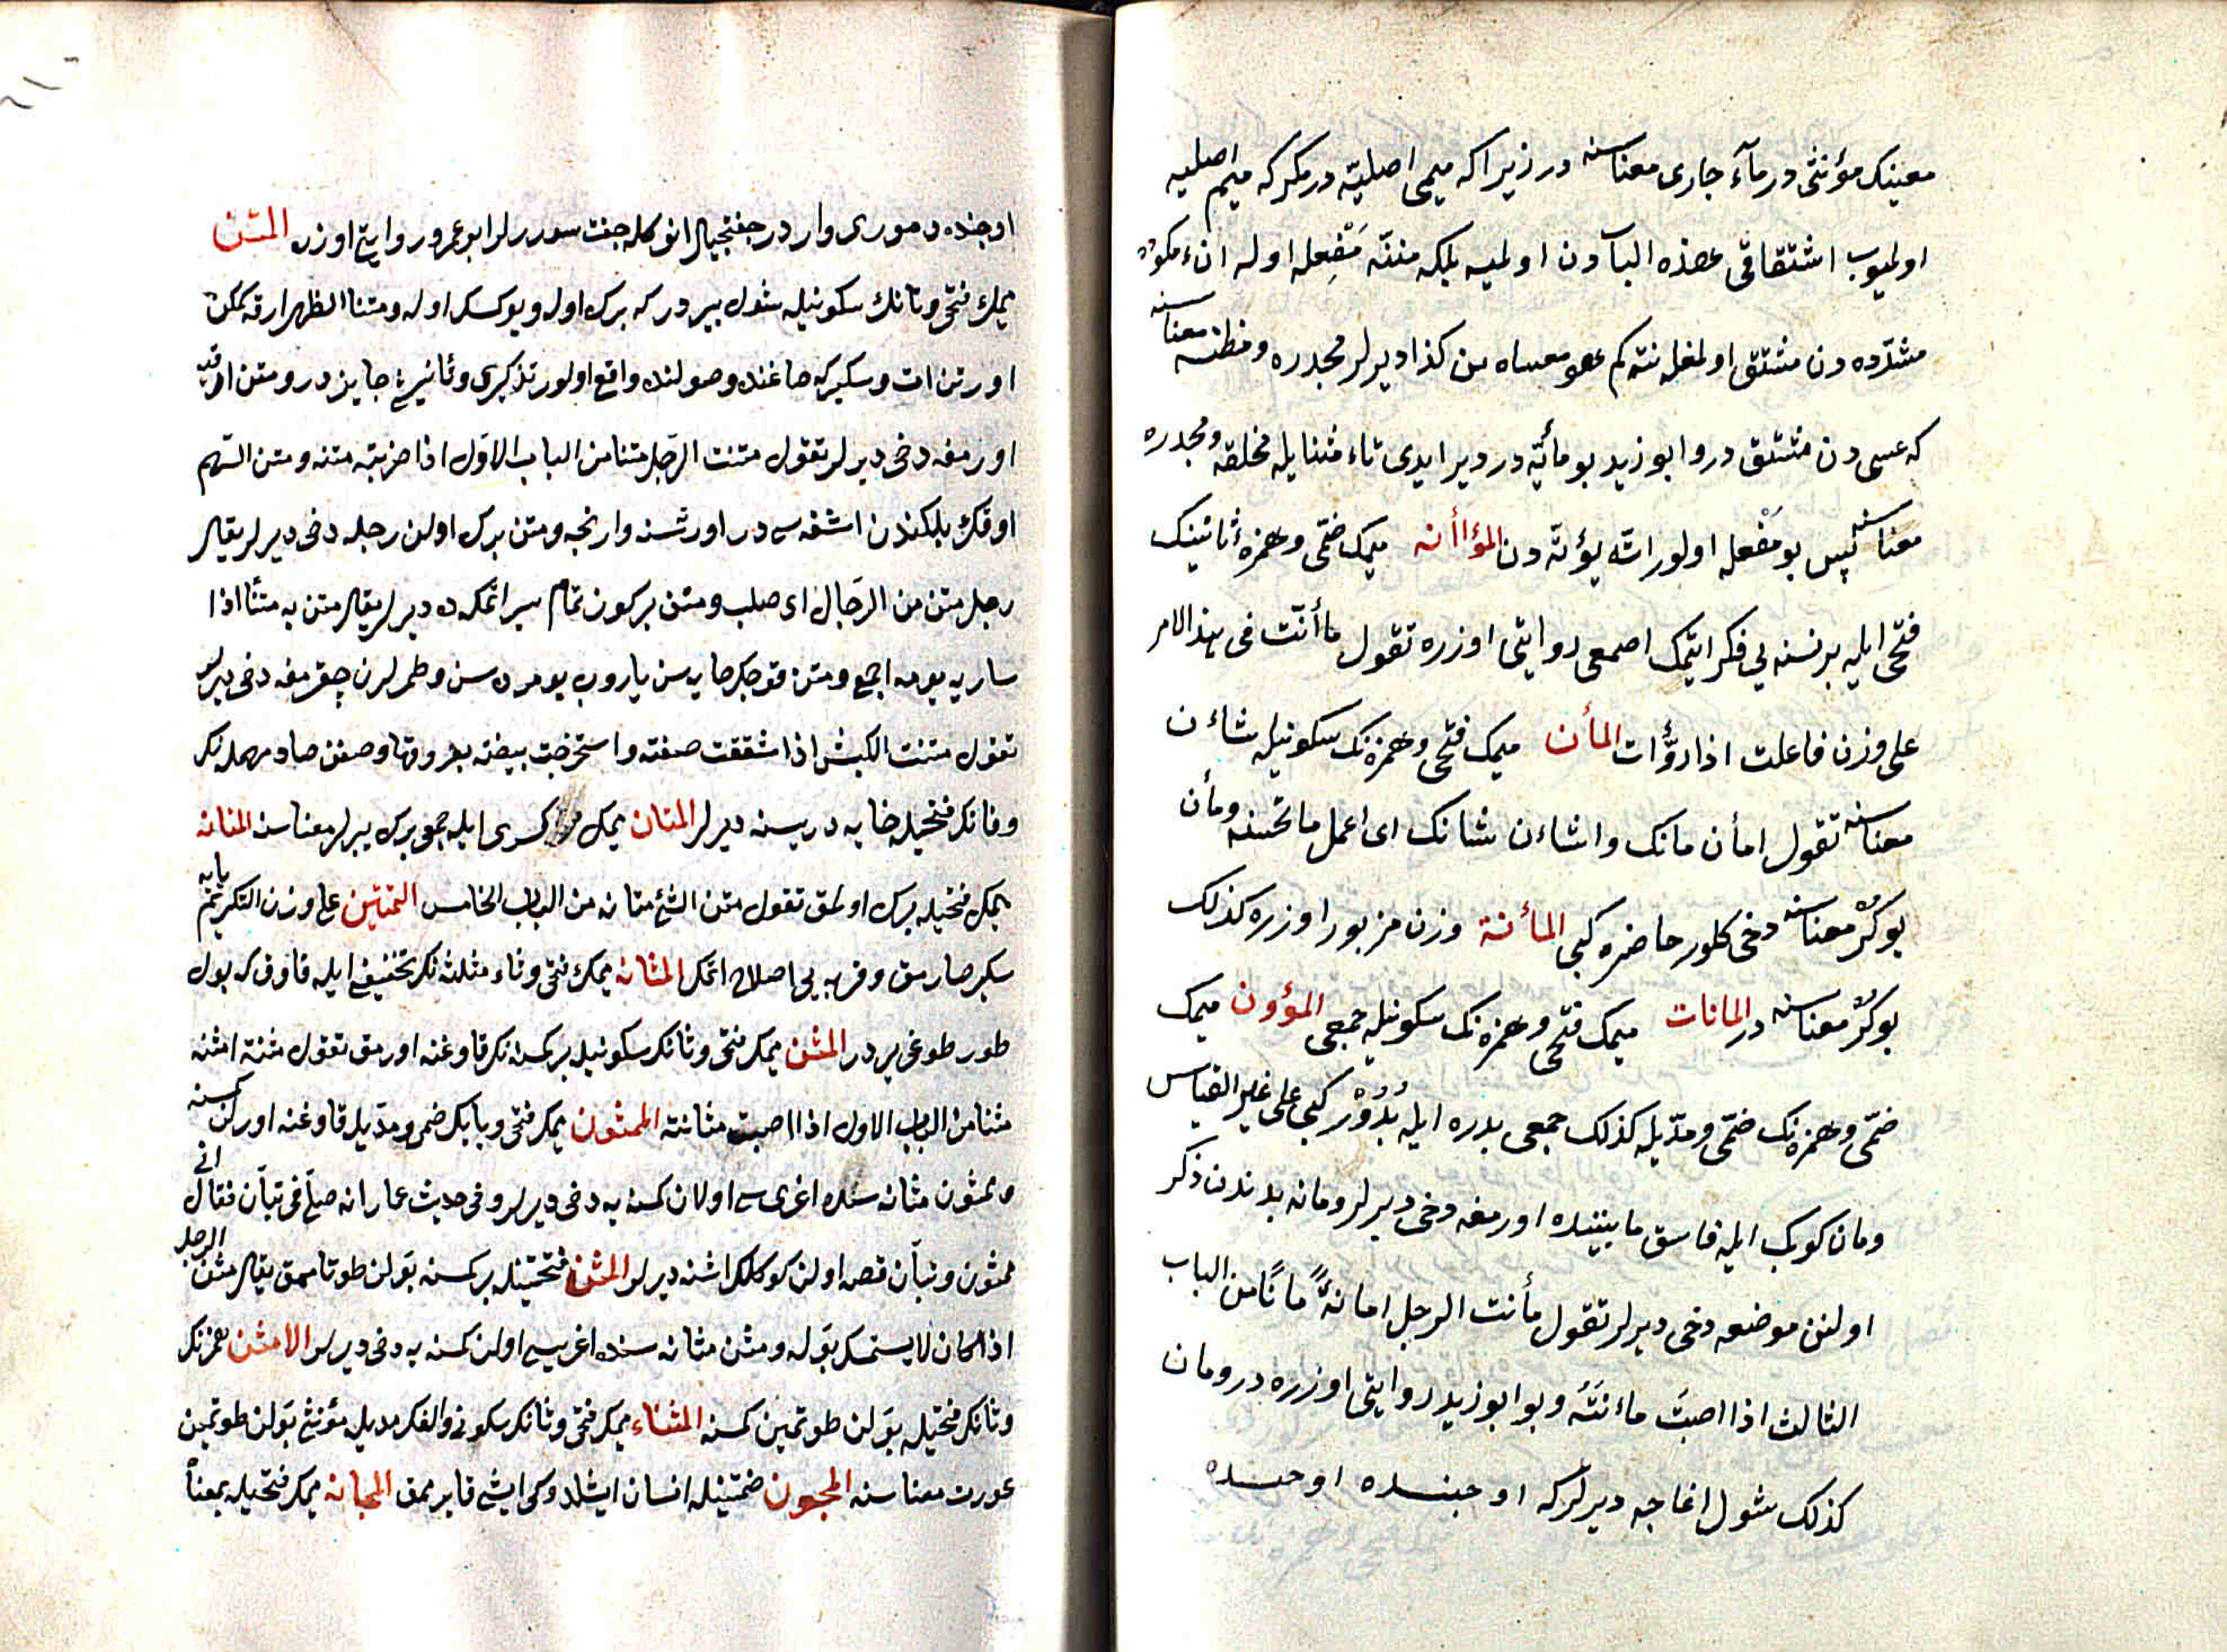 معينك مؤنثى در مآء جارى معناسنه در زيرا كه ميمى اصليّه در مكر كه ميم اصليه
اولميوب اشتقاقى همزه البآدن اولميه بلكه مننّه مَفْعِله اوله انء مكسوره
مشدّده دن مشتق اولمغله نته كم هو معساه من كذا ديرلر مجدره ومظنه معناسنه
كه عسى دن مشتق در وابو زيد بو مائتّه در دير ايدى تاء مثنايله مخلقه ومجدره
معناسنه پس بو مَفْعله اولور اتّه يؤتّه دن المؤاأنه ميمك ضمّى وهمزهٔ ثانينك
فتحى ايله بر نسنه يى فكر ايتمك اصمعى روايتى اوزره تقول مأأنت فى هذا الامر
على وزن فاعلت اذا روّأت المأن ميمك فتحى وهمزه نك سكونيله شاءن
معناسنه تقول امأن مانك واشاءن شانك اى اعمل ما تحسنه ومأن
بوكر معناسنه دخى كلور حاضره كبى المأنة وزن مزبور اوزره كذلك
بوكر معناسنه در المانات ميمك فتحى وهمزه نك سكونيله جمعى المؤون ميمك
ضمّى وهمزه نك ضمّى ومدّيله كذلك جمعى بدره ايله بُدُوْر كبى على غير القياس
ومان كوبك ايله قاسق مابينيده اورمغه دخى ديرلر ومانه بدندن ذكر
اولنن موضعه دخى ديرلر تقول مأنت الرجل امانهً مانًا من الباب
الثالث اذا اصبتَ ماءنتَهُ وبو ابو زيد روايتى اوزره در ومان
كذلك شول اغاجه ديرلر كه اوجنده اوجنده
اوجنده دمورى وار در جفتجيلر انوكله جفت سورر لر ابو عمرو روايتى اوزره المتن
ميمك فتحى وتانك سكونيله شول يير در كه برك اوله ويوكسك اوله ومتنا الظهر ارقه نك
اورتن ات وسكيركه صاغنده وصولنده واقع اولور تذكيرى وتأنيثى جايز در ومتن ارقيه
اورمغه دخى ديرلر تقول متنت الرّجل متنا من الباب الاوّل اذا ضربته متنه ومتن السّهم
اوقك يلكندن اشغه سى در اورتسنه وارنجه ومتن برك اولن رجله دخى ديرلر يقال
رجل متن من الرّجال اى صلب ومتن بر كون تمام سير اتمكه ده ديرلر يقال متن به متنًا اذا
سار به يومه اجمع ومتن قوجك خايه سن ياروب يومرده سن وطمرلرن چقرمغه دخى ديرلر
تقول متنت الكبش اذا شققت صفنه واستخرجت بيضته بعروقها وصفن صاد مهمله نك
وفانك فتحيله خايه دريسنه ديرلر المتان ميمك كسرى ايله جمعى برك ييرلر معناسنه المتانه
ميمك فتحيله برك اولمق تقول متن الشئ متانه من الباب الخامس التمتين على وزن التكريم يايه
سكير صارمق وقربه يى اصلاح اتمك المثانه ميمك فتحى وثاء مثلثه نك تخفيفى ايله قاوق كه بول
طورطوغى ير در المثن ميمك فتحى وثانك سكونيله بر كسنه نك قاوغنه اورمق تقول مثنته امثنه
مثنا من الباب الاول اذا اصبت مثانته الممثون ميمك فتحى وبابك ضمى ومدّيله قاوغنه اورلن كسنه
وممثون مثانه سنده اغرى سى اولان كسنه يه دخى ديرلر وفى حديث عمار انه صلّى فى تبّان فقال انى
ممثون وتبّان قصه اولن كوكلك اشنه ديرلر المثن فتحتينله بر كسنه بَولن طوتامامق يقال مثن الرجل
اذا كان لا يستمسك بَوله ومثن مثانه سنده اغريسى اولن كسنه يه دخى ديرلر الامثن همزه نك
وثانك فتحيله بَولن طوتمين كسنه المثناء ميمك فتحى وثانك سكونى والفك مديله مؤنثى بَولن طوتمين
عورت معناسنه المجون ضمتينله انسان ايشلدوكى ايشى قايرممق المجانه ميمك فتحيله بمعناه